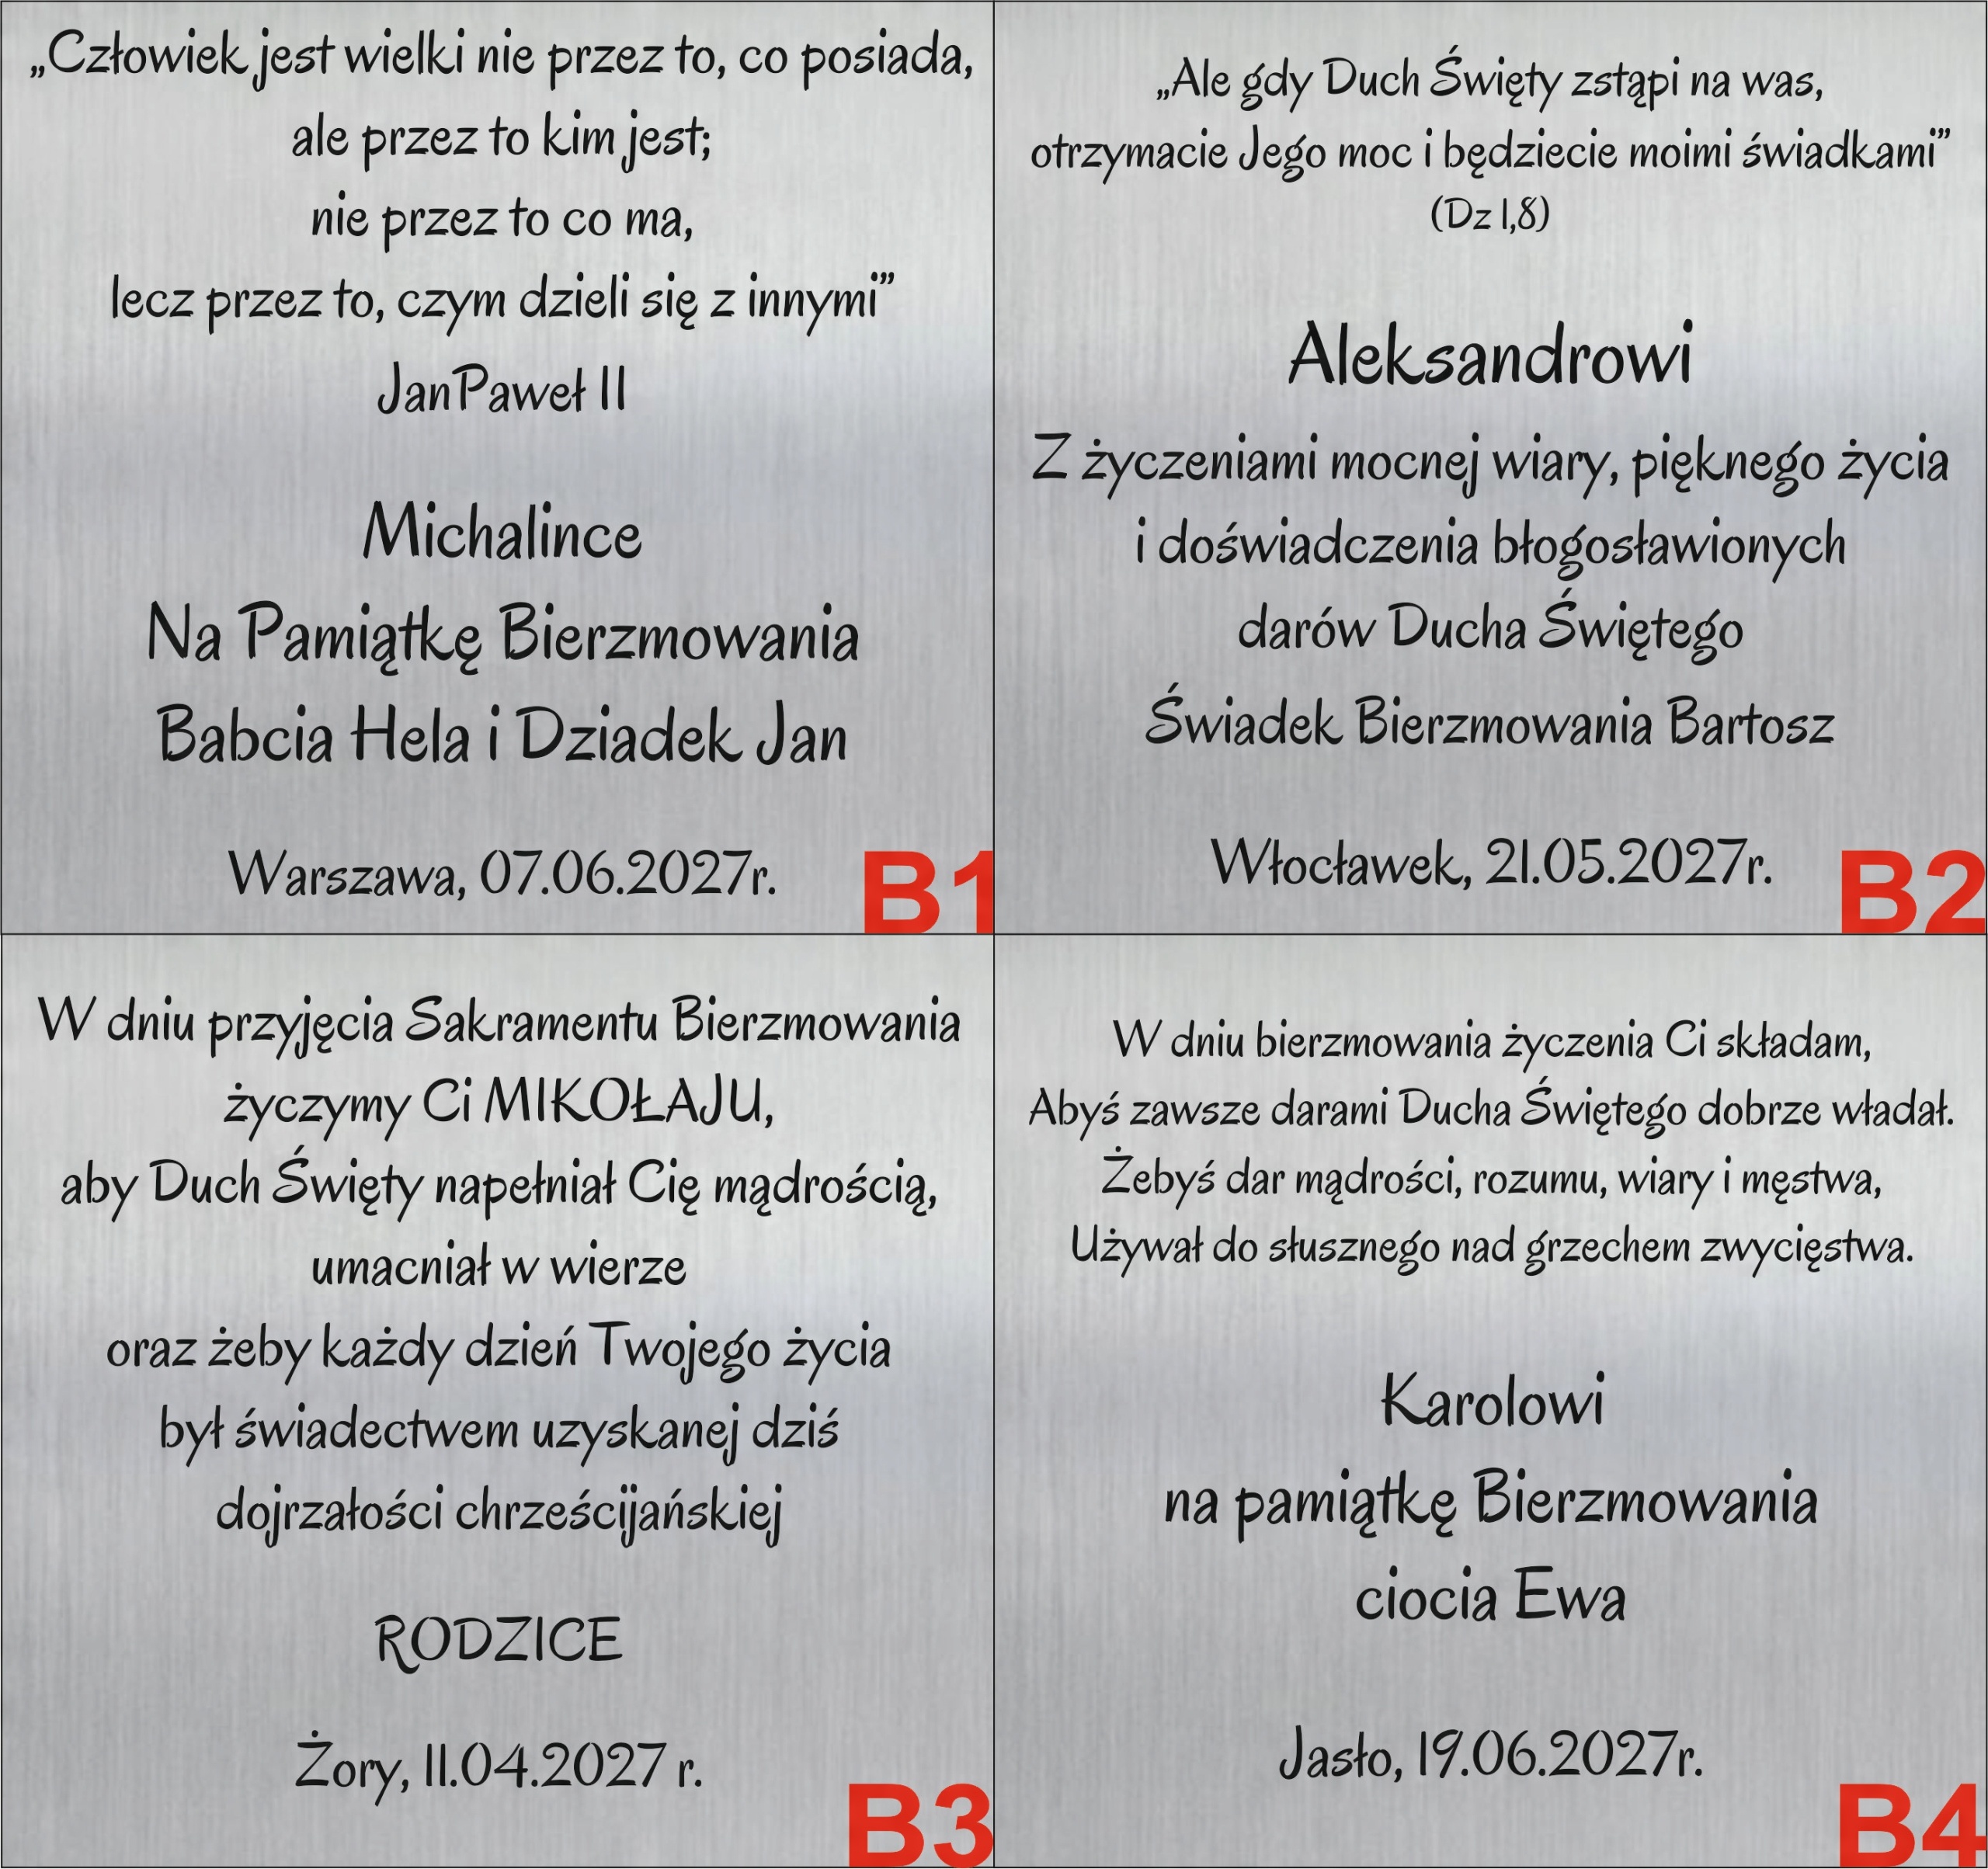 „Człowiek jest wielki nie przez to, co posiada,
ale przez to kim jest;
nie przez to co ma,
lecz przez to, czym dzieli się z innymi”
JanPaweł II
Michalince
Na Pamiątkę Bierzmowania
Babcia Hela i Dziadek Jan
Warszawa, 07.06.2027r.
B1
„Ale gdy Duch Święty zstąpi na was,
otrzymacie Jego moc i będziecie moimi świadkami”
(Dz 1,8)
Aleksandrowi
Z życzeniami mocnej wiary, pięknego życia
i doświadczenia błogosławionych
darów Ducha Świętego
Świadek Bierzmowania Bartosz
Włocławek, 21.05.2027r.
B2
W dniu przyjęcia Sakramentu Bierzmowania
życzymy Ci MIKOŁAJU,
aby Duch Święty napełniał Cię mądrością,
umacniał w wierze
oraz żeby każdy dzień Twojego życia
był świadectwem uzyskanej dziś
dojrzałości chrześcijańskiej
RODZICE
Żory, 11.04.2027 r.
B3
W dniu bierzmowania życzenia Ci składam,
Abyś zawsze darami Ducha Świętego dobrze władał.
Żebyś dar mądrości, rozumu, wiary i męstwa,
Używał do słusznego nad grzechem zwycięstwa.
Karolowi
na pamiątkę Bierzmowania
ciocia Ewa
Jasło, 19.06.2027r.
B4